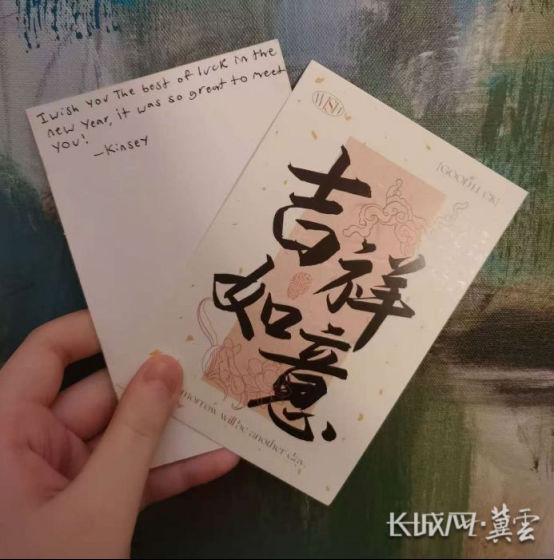 I wish you The best of luck in the
new year, it was so great to meet
you!
—Kinsey
WISH
[GOOD LUCK]
吉祥
如意
morrow will be another day.
长城网·冀雲